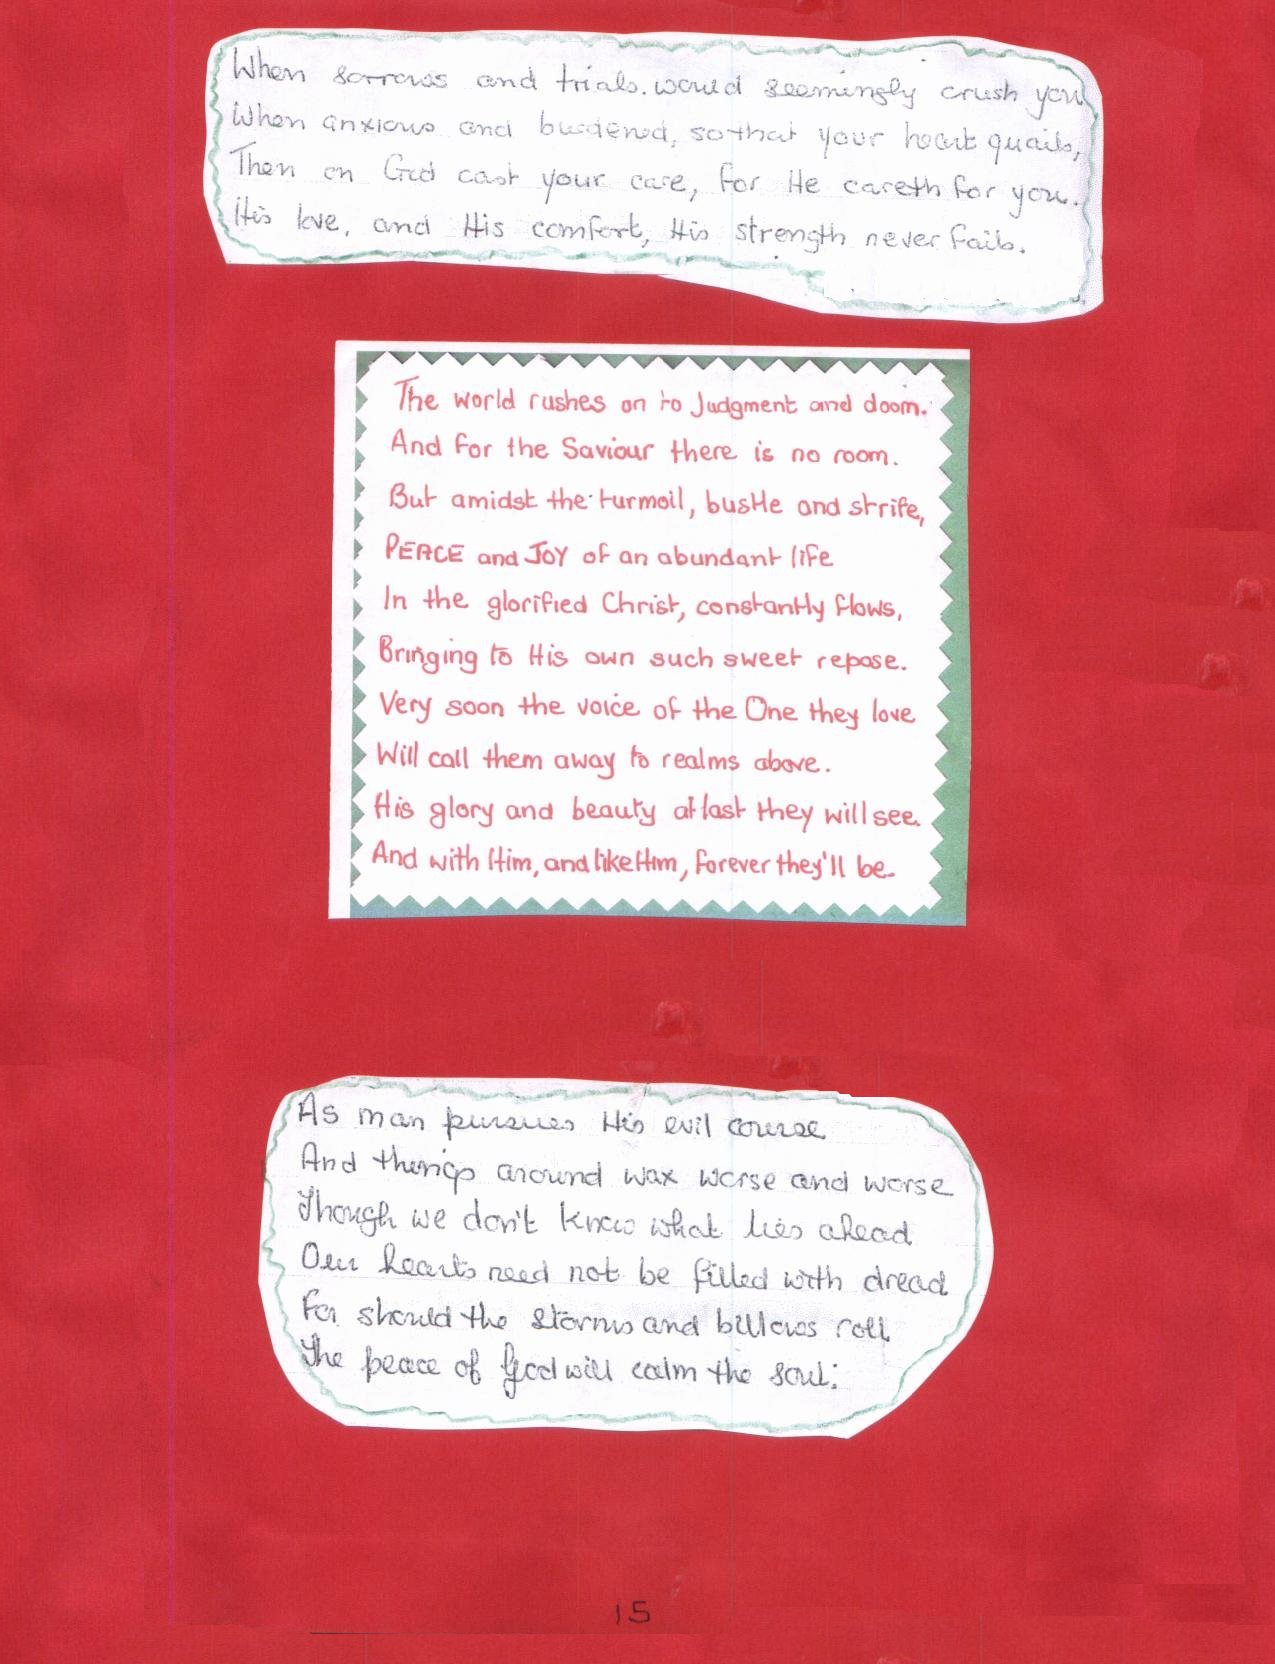 When sorrows and trials. would seemingly crush you
When anxious and burdened, so that your heart quails,
Then on God cast your care, for He careth for you.
His love, and His comfort, His strength never fails.
The world rushes on to Judgment and doom.
And for the Saviour there is no room.
But amidst the turmoil, bustle and strife,
PEACE and JOY of an abundant life
In the glorified Christ, constantly flows,
Bringing to His own such sweet repose.
Very soon the voice of the One they love
Will call them away to realms above.
His glory and beauty at last they will see.
And with Him, and like Him, forever they'll be.
As man pursues His evil course
And things around wax worse and worse
Though we don't know what lies ahead
Our hearts need not be filled with dread
For should the storms and billows roll
The peace of God will calm the soul.
15